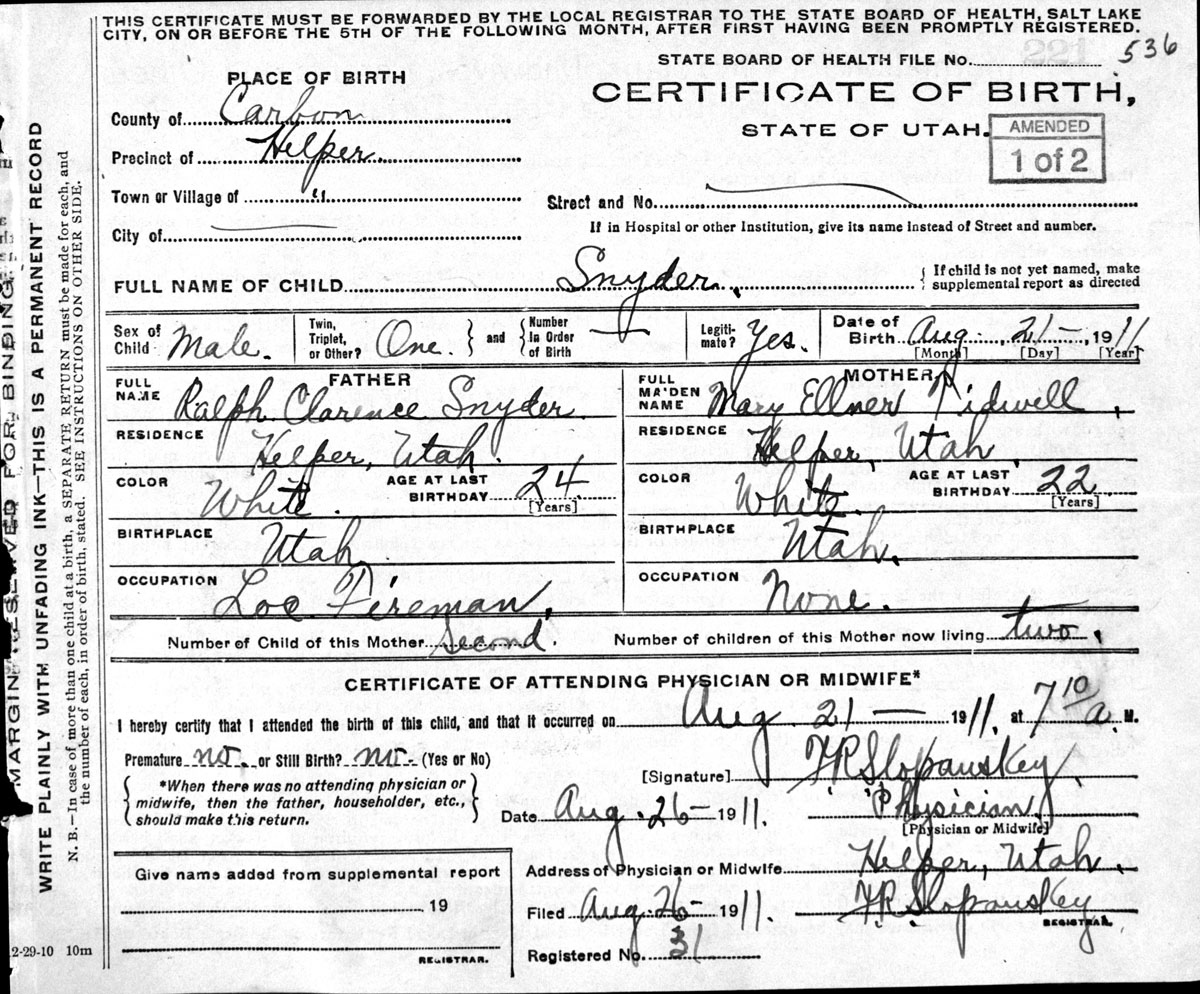 THIS CERTIFICATE MUST BE FORWARDED BY THE LOCAL REGISTRAR TO THE STATE BOARD OF HEALTH, SALT LAKE
CITY, ON OR BEFORE THE 5TH OF THE FOLLOWING MONTH, AFTER FIRST HAVING BEEN PROMPTLY REGISTERED.
536
STATE BOARD OF HEALTH FILE No.
PLACE OF BIRTH
CERTIFICATE OF BIRTH,
STATE OF UTAH.
AMENDED
1 of 2
County of Carbon
Precinct of Helper
Town or Village of "
Street and No.
City of
If in Hospital or other Institution, give its name instead of Street and number.
FULL NAME OF CHILD Snyder.
{ If child is not yet named, make
supplemental report as directed
Sex of Child Male.
Twin, Triplet, or Other? One. } and { Number In Order of Birth —
Legiti- mate? Yes.
Date of Birth Aug, 21 —, 1911
[Month] [Day] [Year]
FATHER
FULL NAME Ralph Clarence Snyder.
RESIDENCE Helper, Utah.
COLOR White. AGE AT LAST BIRTHDAY 24
[Years]
BIRTHPLACE Utah.
OCCUPATION Loc Fireman,
MOTHER
FULL MAIDEN NAME Mary Ellner Tidwell,
RESIDENCE Helper, Utah,
COLOR White. AGE AT LAST BIRTHDAY 22
[Years]
BIRTHPLACE Utah.
OCCUPATION None.
Number of Child of this Mother Second. Number of children of this Mother now living two.
CERTIFICATE OF ATTENDING PHYSICIAN OR MIDWIFE*
I hereby certify that I attended the birth of this child, and that it occurred on Aug 21 — 1911. at 7 10 a M.
Premature no. or Still Birth? no. (Yes or No)
{ *When there was no attending physician or
midwife, then the father, householder, etc.,
should make this return. }
[Signature] F R Slopanskey,
Physician.
[Physician or Midwife]
Date Aug. 26 — 1911.
Address of Physician or Midwife Helper, Utah.
Filed Aug. 26 — 1911. F R Slopanskey
REGISTRAR.
Registered No. 31
Give name added from supplemental report
19
REGISTRAR.
2-29-10 10m
MARGIN RESERVED FOR BINDING.
WRITE PLAINLY WITH UNFADING INK—THIS IS A PERMANENT RECORD
N. B.—In case of more than one child at a birth, a SEPARATE RETURN must be made for each, and
the number of each, in order of birth, stated. SEE INSTRUCTIONS ON OTHER SIDE.